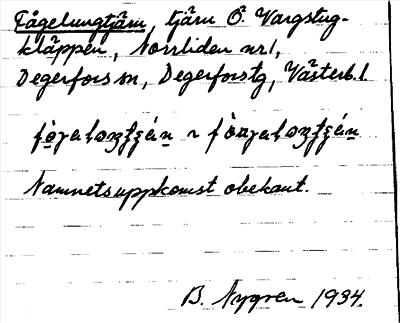 Fågelungtjärn, tjärn Ö. Vargstug-
kläppen, Norrliden nr 1,
Degerfors sn, Degerforstg, Västerb. l
Namnets uppkomst obekant.
B. Nygren 1934.